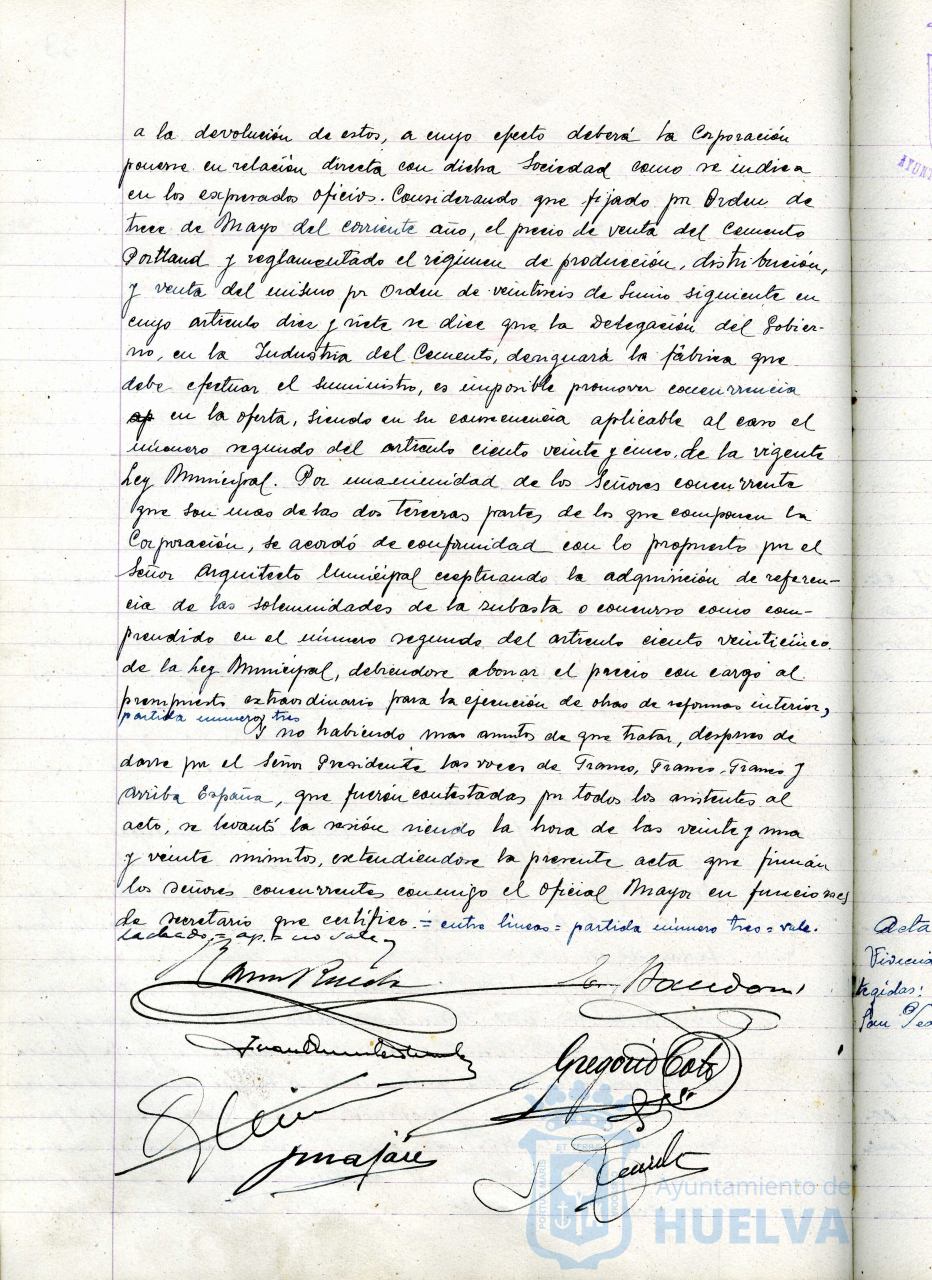 a la devolución de estos, a cuyo efecto deberá la Corporación
ponerse en relación directa con dicha Sociedad como se indica
en los expresados oficios. Considerando que fijado por Orden de
trece de Mayo del corriente año, el precio de venta del Cemento
Portland y reglamentado el régimen de producción, distribución,
y venta del mismo por Orden de veintiseis de Junio siguiente en
cuyo articulo diez y siete se dice que la Delegación del Gobier-
no, en la Industria del Cemento, designará la fábrica que
debe efectuar el suministro, es imposible promover concurrencia
ap en la oferta, siendo en su consecuencia aplicable al caso el
número segundo del articulo ciento veinte y cinco, de la vigente
Ley Municipal. Por unanimidad de los Señores concurrente
que son mas de las dos terceras partes de los que componen la
Corporación, se acordó de conformidad con lo propuesto por el
Señor Arquitecto Municipal exceptuando la adquisición de referen-
cia de las solemnidades de la subasta o concurso como com-
prendido en el número segundo del articulo ciento veinticinco.
de la Ley Municipal, debiendose abonar el precio con cargo al
presupuesto extraordinario para la ejecución de obras de reformas interior,
partida número tres
Y no habiendo mas asuntos de que tratar, despues de
darse por el Señor Presidente las voces de Franco, Franco, Franco y
Arriba España, que fuerón contestadas por todos los asistentes al
acto, se levantó la sesión siendo la hora de las veinte y una
y veinte minutos, extendiendose la presente acta que firmán
los señores concurrentes conmigo el Oficial Mayor en funciones
de secretario que certifico. = entre lineas = partida número tres = vale.
tachado = ap. = no vale
Gregorio Coto
Ayuntamiento de
HUELVA
Acta